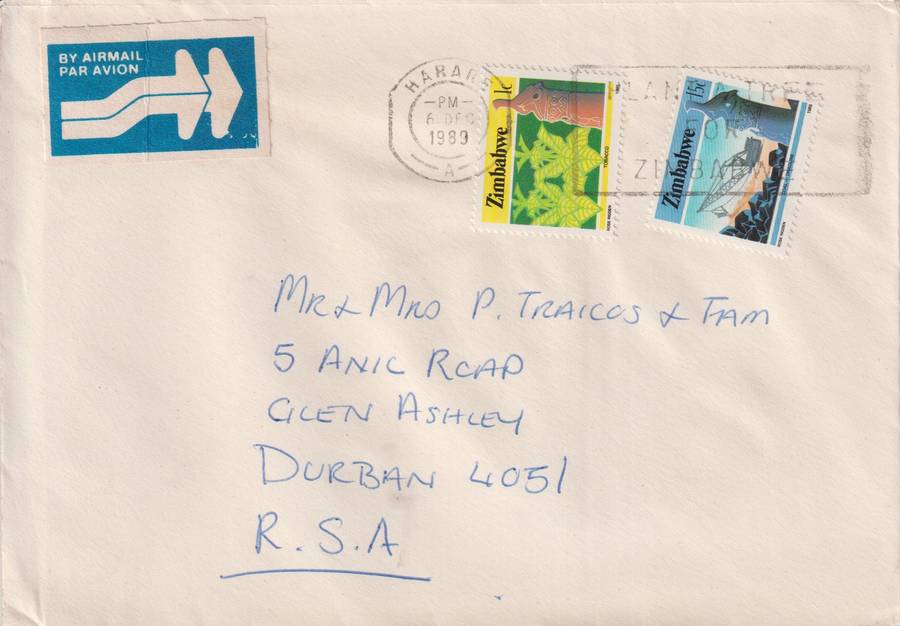 BY AIRMAIL
PAR AVION
HARARE
-PM-
6 DEC
1989
A
PLANT A TREE
FOR
ZIMBABWE
1c
Zimbabwe
TOBACCO
ROSE RUDDEN
1985
15c
Zimbabwe
ROSE RUDDEN
1985
Mr & Mrs P. TRAICOS & FAM
5 ANIC ROAD
GLEN ASHLEY
DURBAN 4051
R.S.A